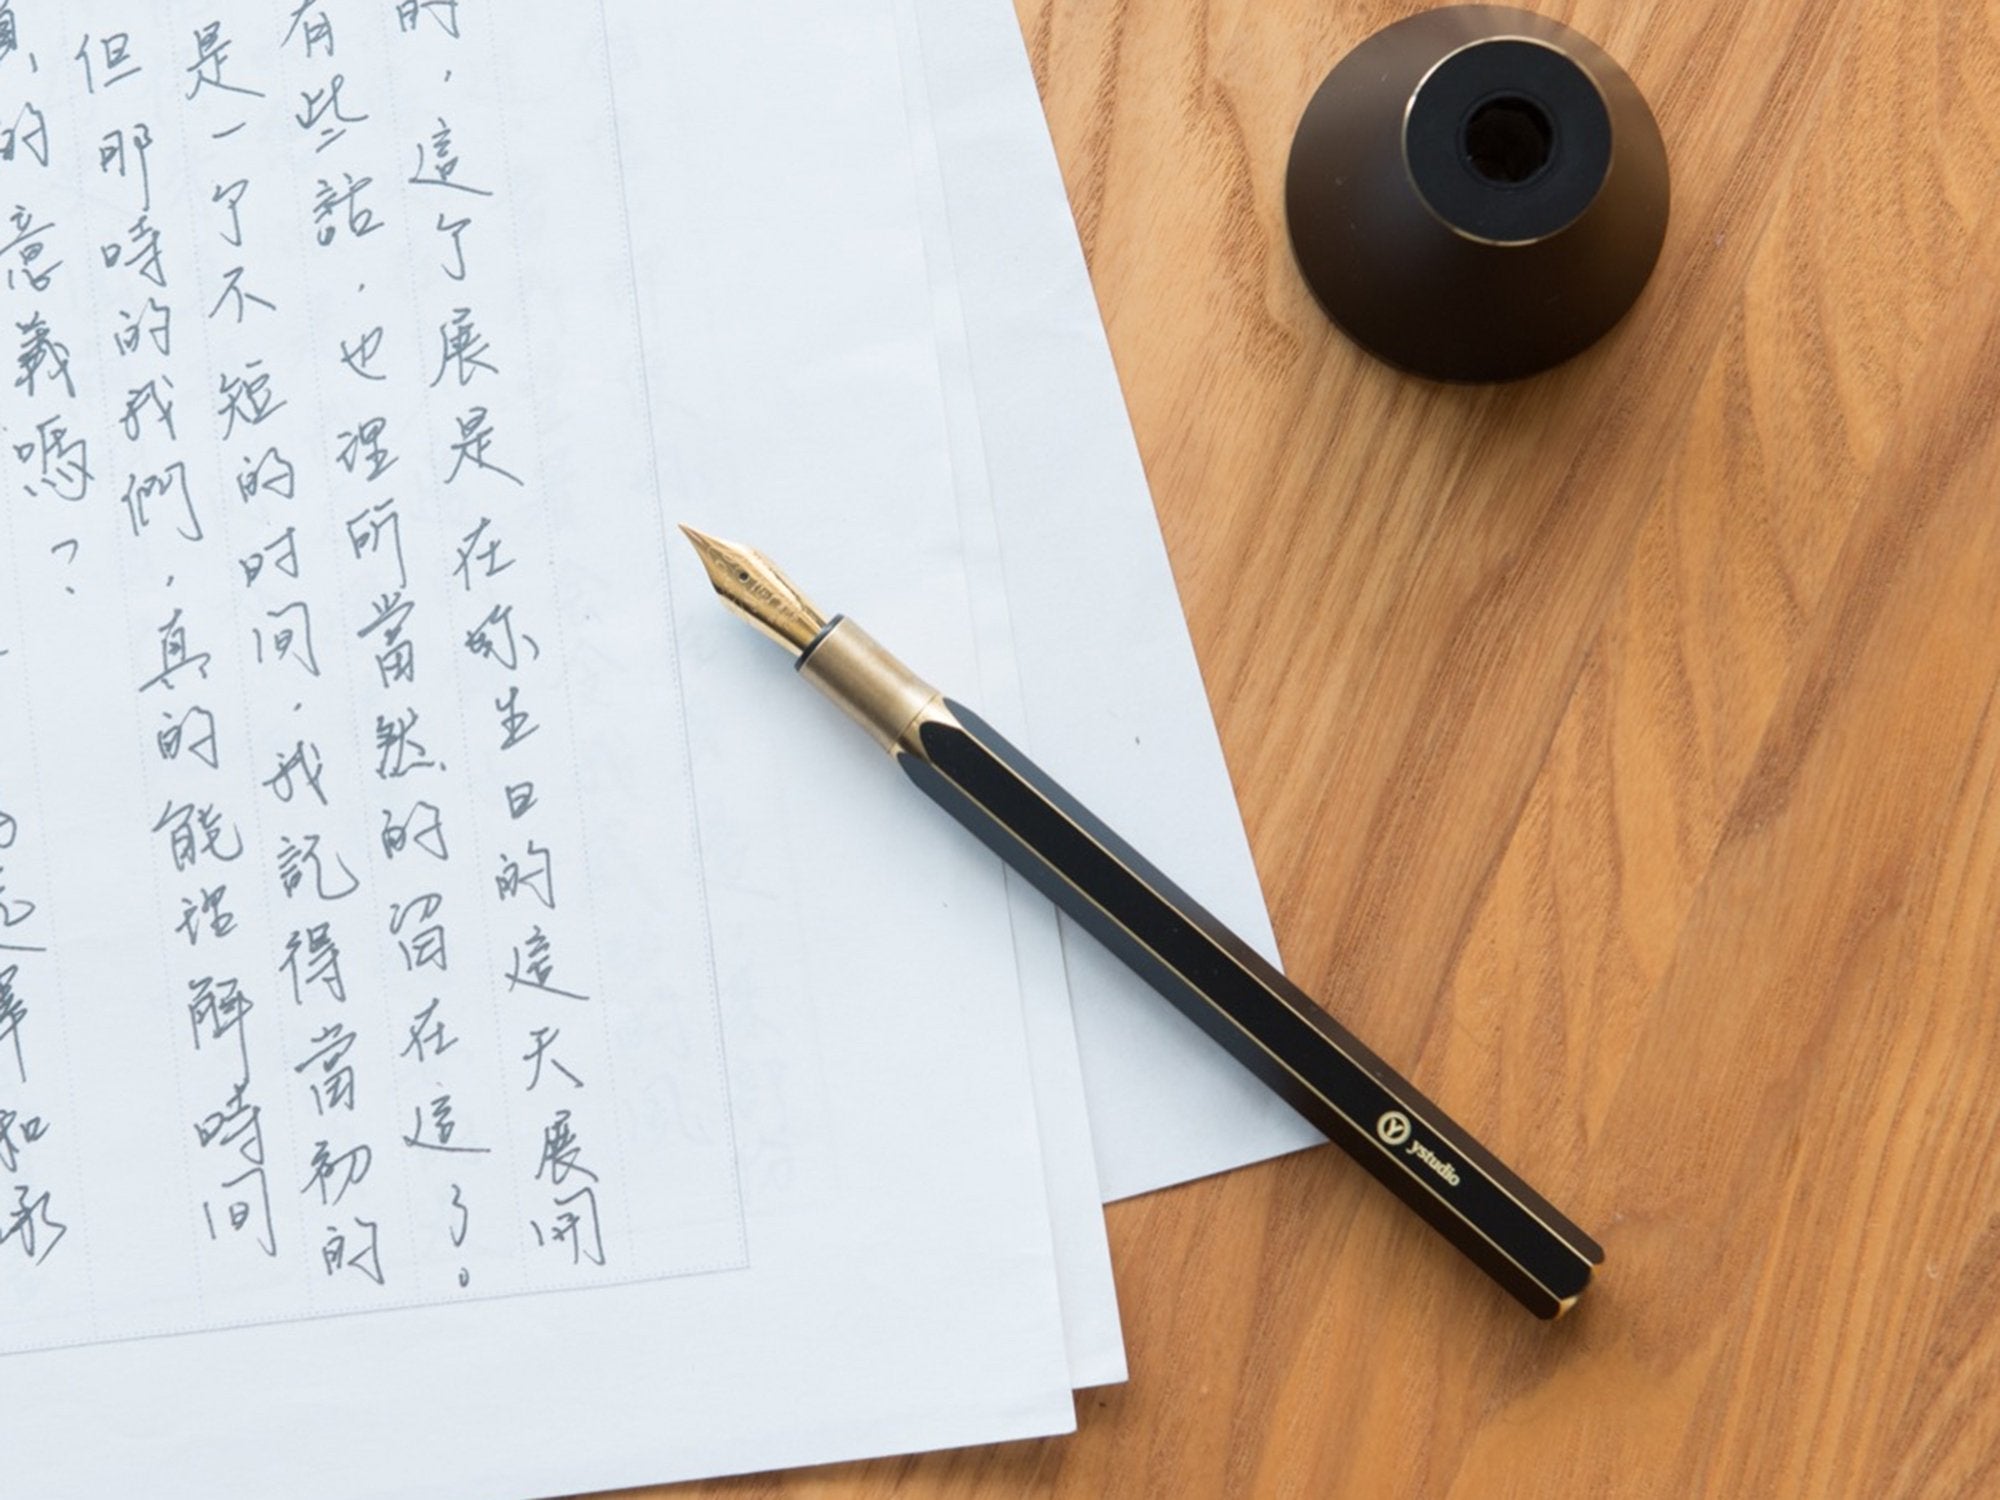 的，這个展是在妳生日的這天展開
有些話，也理所當然的留在這了。
是一个不短的时间，我記得當初的
但那時的我們，真的能理解時間
的意義嗎？
擇和承
ystudio